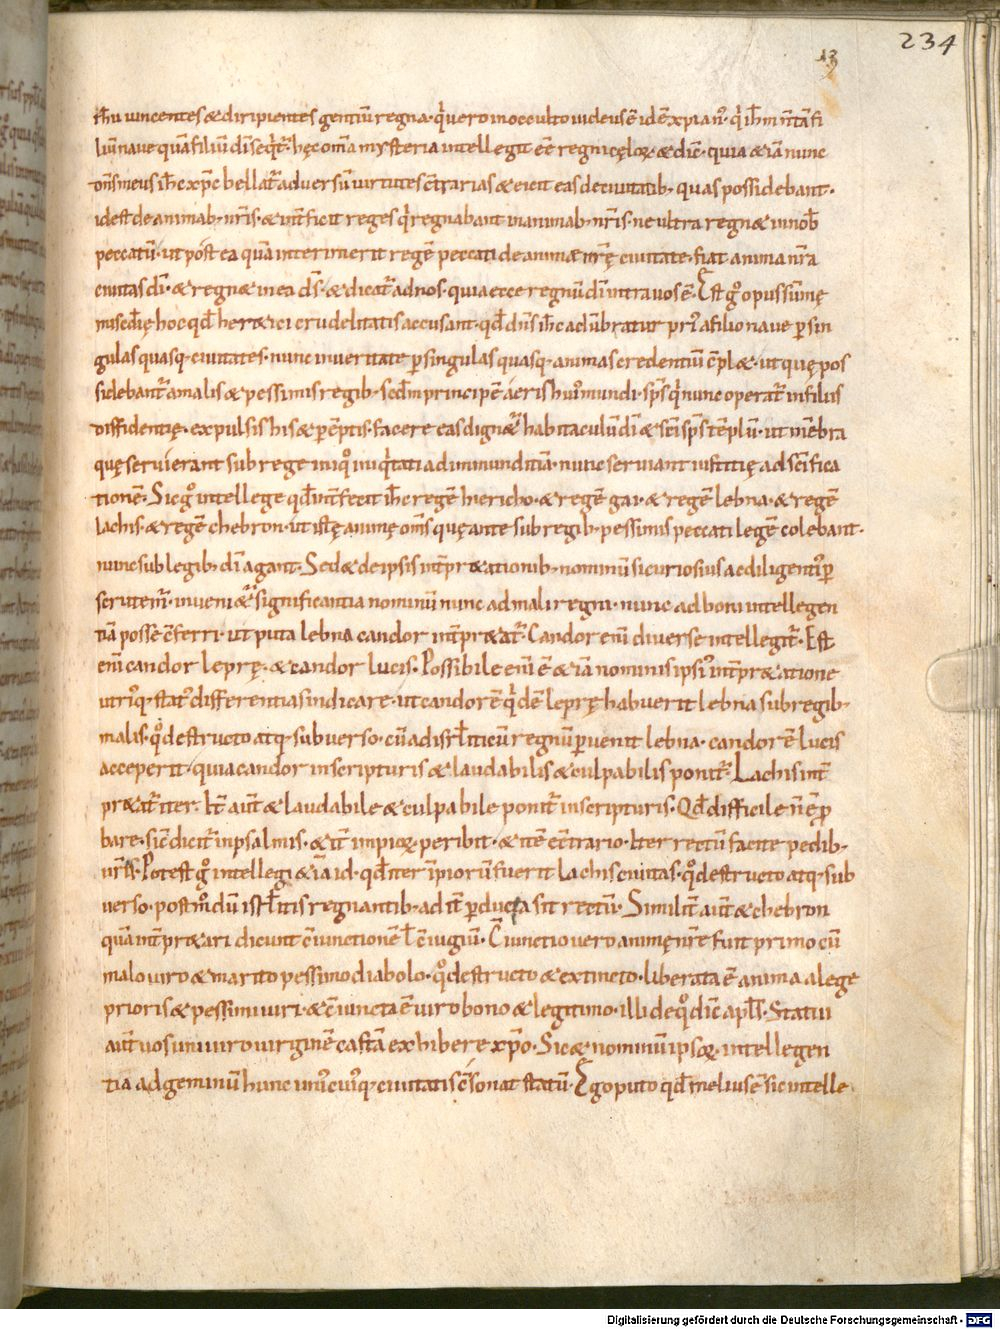 234
13
ih̄u uincentes & diripientes gentiū regna. q̇ uero in occulto iudeus ē idē xp̄ianꝰ. q̇ ih̄m n̄ tā fi
liū naue quā filiū dī seq̇tr̄. hęc om̄a mysteria intellegit ēē regni cęloꝝ. & dic̄. quia & iā nunc
dn̄s meus ih̄c xp̄c bellatr̄ aduersū uirtutes c̄trarias & eicit eas de ciuitatib; quas possidebant.
id est de animab; nr̄is. & int̄ficit reges q̇ regnabant in animab; nr̄is. ne ultra regn& in nob̄
peccatū. ut post ea quā interimerit regē peccati de animę nr̄ę ciuitate. fiat anima nr̄a
ciuitas dī. & regn& in ea d̄s. & dicatr̄ ad nos. quia ecce regnū dī intra uos ē. Est gͦ opus sūmę
miscd̄ię hoc qđ her&ici crudelitatis accusant. qđ dn̄s ih̄c adūbratur priꝰ a filio naue ꝑ sin
gulas quasq; ciuitates. nunc in ueritate ꝑ singulas quasq; animas credentiū c̄pl&. ut quę pos
sidebantr̄ a malis & pessimis regib; sc̄dm principē aeris huiꝰ mundi. sp̄s q̇ nunc operatr̄ in filiis
diffidentię. expulsis his & pēptis. facere eas dign&r̄ habitaculū dī & sc̄i sp̄s tēplū. ut mēbra
quę seruierant sub rege iniqͦ iniq̇tati ad inmunditiā. nunc seruiant iustitię ad sc̄ifica
tionē. Sic gͦ intellege qđ int̄fecit ih̄c regē hiericho. & regē gai. & regē lebna. & regē
lachis. & regē chebron. ut istę animę om̄s quę ante sub regib; pessimis peccati legē colebant.
nunc sub legib; dī agant. Sed & de ipsis int̄pr&ationib; nominū si curiosius ac diligentiꝰ ꝑ
scrutemr̄. inueni&r̄ significantia nominū nunc ad mali regni. nunc ad boni intellegen
tiā posse c̄ferri. ut puta lebna candor int̄pr&atr̄. Candor enī diuerse intellegitr̄. Est
enī candor leprę. & candor lucis. Possibile enī ē & iā nominis ipsiꝰ int̄pr&atione
utriꝰq; statꝰ differentias indicare. ut candorē q̇dē leprę habuerit lebna sub regib;
malis. qͦ destructo atq; subuerso. cū ad isrl̄iticū regnū ꝑuenit lebna. candorē lucis
acceperit. quia candor in scripturis & laudabilis & culpabilis ponitr̄. Lachis int̄
pr&atr̄ iter. It̄ aut̄ & laudabile & culpabile ponitr̄ in scripturis. Qđ difficile n̄ ē ꝓ
bare. sic̄ dicitr̄ in psalmis. & it̄ impioꝝ peribit. & itē ec̄trario. Iter rectū facite pedib;
ur̄is. Potest gͦ intellegi & iā id. qđ iter īpiorū fuerit lachis ciuitas. qͦ destructo atq; sub
uerso. postmͦdū isrl̄itis regnantib; ad it̄ ꝑducta sit rectū. Similit̄ aut̄ & chebron
quā int̄pr&ari dicunt c̄iunctionē ł c̄iugiū. C̄iunctio uero animę nr̄e fuit primo cū
malo uiro & marito pessimo diabolo. qͦ destructo & extincto. liberata ē anima a lege
prioris & pessimi uiri. & c̄iuncta ē uiro bono & legitimo. illi de qͦ dic̄ apl̄s. Statui
aut̄ uos uni uiro uirginē castā exhibere xp̄o. Sic & nominū ipsoꝝ intellegen
tia ad geminū hunc uniꝰcuiꝰq; ciuitatis c̄sonat statū. Ego puto qđ melius ē sic intelle
Digitalisierung gefördert durch die Deutsche Forschungsgemeinschaft - DFG